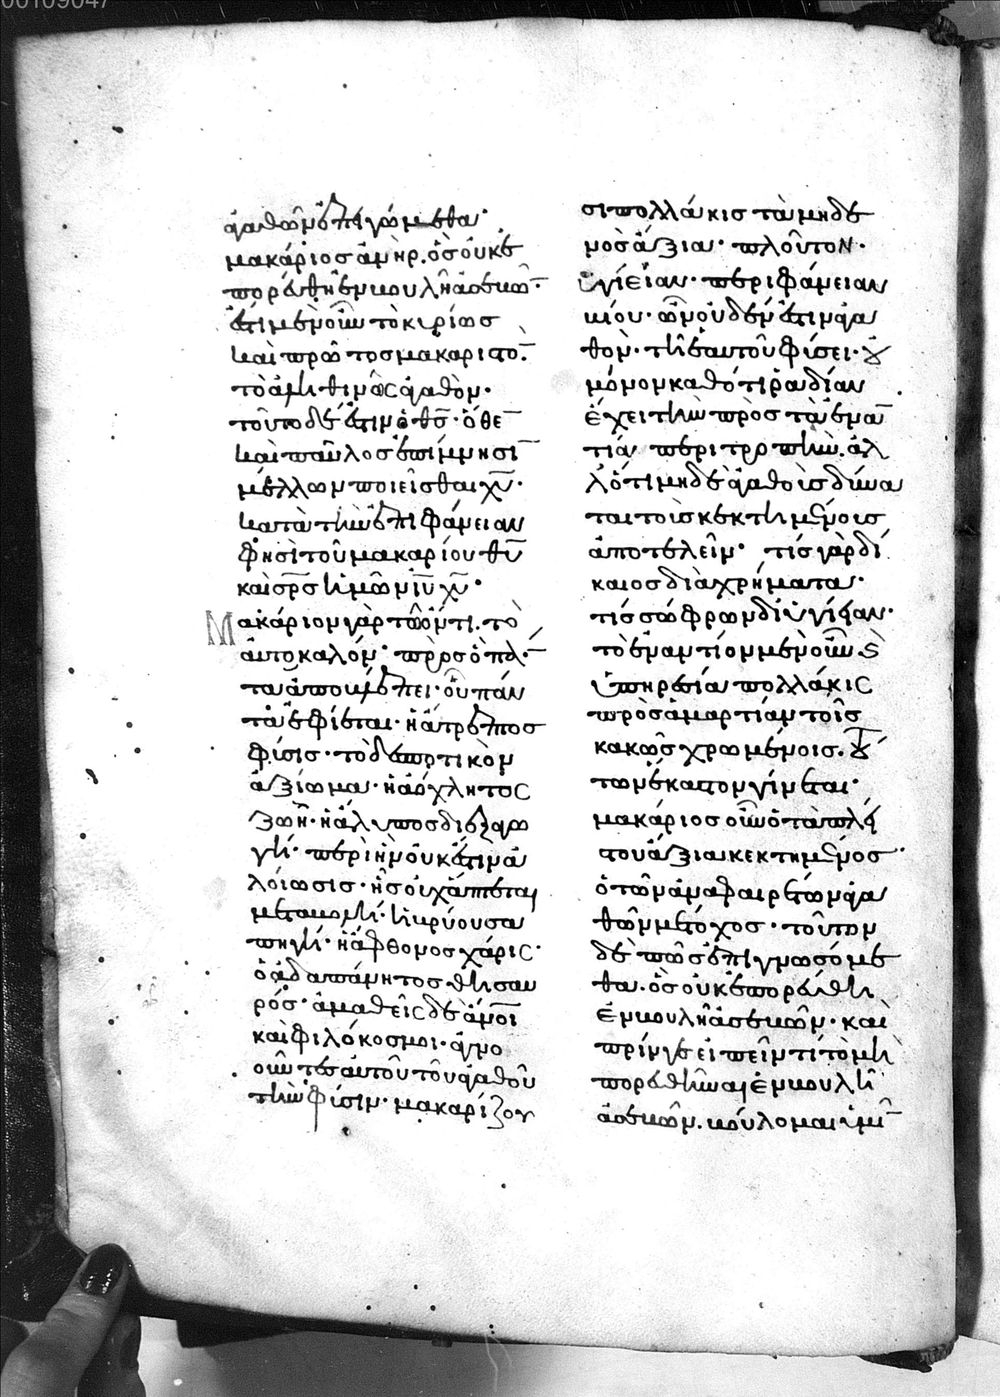 00109047
ἀγαθῶν ἐπειγώμεθα·
μακάριος ἀνὴρ. ὃς οὐκ ἐ
πορεύθη ἐν βουλῆ ἀσεβῶ̅·
ἔστι μὲν οὖν τὸ κυρίως
καὶ πρώτως μακαριστὸ̅·
τὸ ἀληθινῶς ἀγαθὸν·
τοῦτο δέ ἐστιν ὁ θ̅ς̅· ὅθε̅
καὶ παῦλος ἐπιμνησ
μέλλων ποιεῖσθαι χ̅υ̅·
κατὰ τὴν ἐπιφάνειαν
φησὶ τοῦ μακαρίου θ̅υ̅
καὶ σ̅ρ̅ς̅ ἡμῶν ἰ̅υ̅ χ̅υ̅·
Μακάριον γὰρ τῶ ὄντι. τὸ
αὐτοκαλόν· πρὸς ὃ πά̅
τα ἀποβλέπει· οὗ πάν
τα ἐφίεται· ἡ ἄτρεπτος
φύσις· τὸ δεσποτικὸν
ἀξίωμα· ἡ ἀόχλητος
ζωὴ· ἡ ἄλυπος διεξαγω
γή· περὶ ἣν οὐκ ἔστιν ἀ
λοίωσις· ἧς οὐχ ἅπτεται
μεταβολή· ἡ βρύουσα
πηγή· ἡ ἄφθονος χάρις·
ὁ ἀδαπάνητος θησαυ
ρός· ἀμαθεῖς δὲ ἄνοι
καὶ φιλόκοσμοι· ἀγνο
οῦντες αὐτοῦ τοῦ ἀγαθοῦ
τὴν φύσιν· μακαρίζου
σι πολλάκις τὰ μηδε
νὸς ἄξια· πλοῦτον·
ὑγίειαν· περιφάνειαν
βίου· ὧν οὐδέν ἐστιν ἀγα
θὸν· τῆ ἑαυτοῦ φύσει· οὐ
μόνον καθότι ῥαδίαν
ἔχει τὴν πρὸς τὰ ἐνα̅
τία περιτροπὴν. ἀλ
λ' ὅτι μηδὲ ἀγαθοὺς δύνα
ται τοὺς κεκτημένους
ἀποτελεῖν· τίς γὰρ δί
καιος διὰ χρήματα·
τίς σώφρων δι' ὑγίειαν·
τὸ ἐναντίον μὲν οὖν. κ̀
ὑπηρεσία πολλάκις
πρὸς ἁμαρτίαν τοῖς
κακῶς χρωμένοις. τού
των ἕκαστον γίνεται·
μακάριος οὖν ὁ τὰ πλεί
στου ἄξια κεκτημένος·
ὁ τῶν ἀναφαιρέτων ἀγα
θῶν μέτοχος· τοῦτον
δὲ πῶς ἐπιγνωσόμε
θα· ὃς οὐκ ἐπορεύθη
ἐν βουλῆ ἀσεβῶν· καὶ
πρίν γε εἰπεῖν τί τὸ μὴ
πορευθῆναι ἐν βουλῆ
ἀσεβῶν. βούλομαι ὑμῖ̅